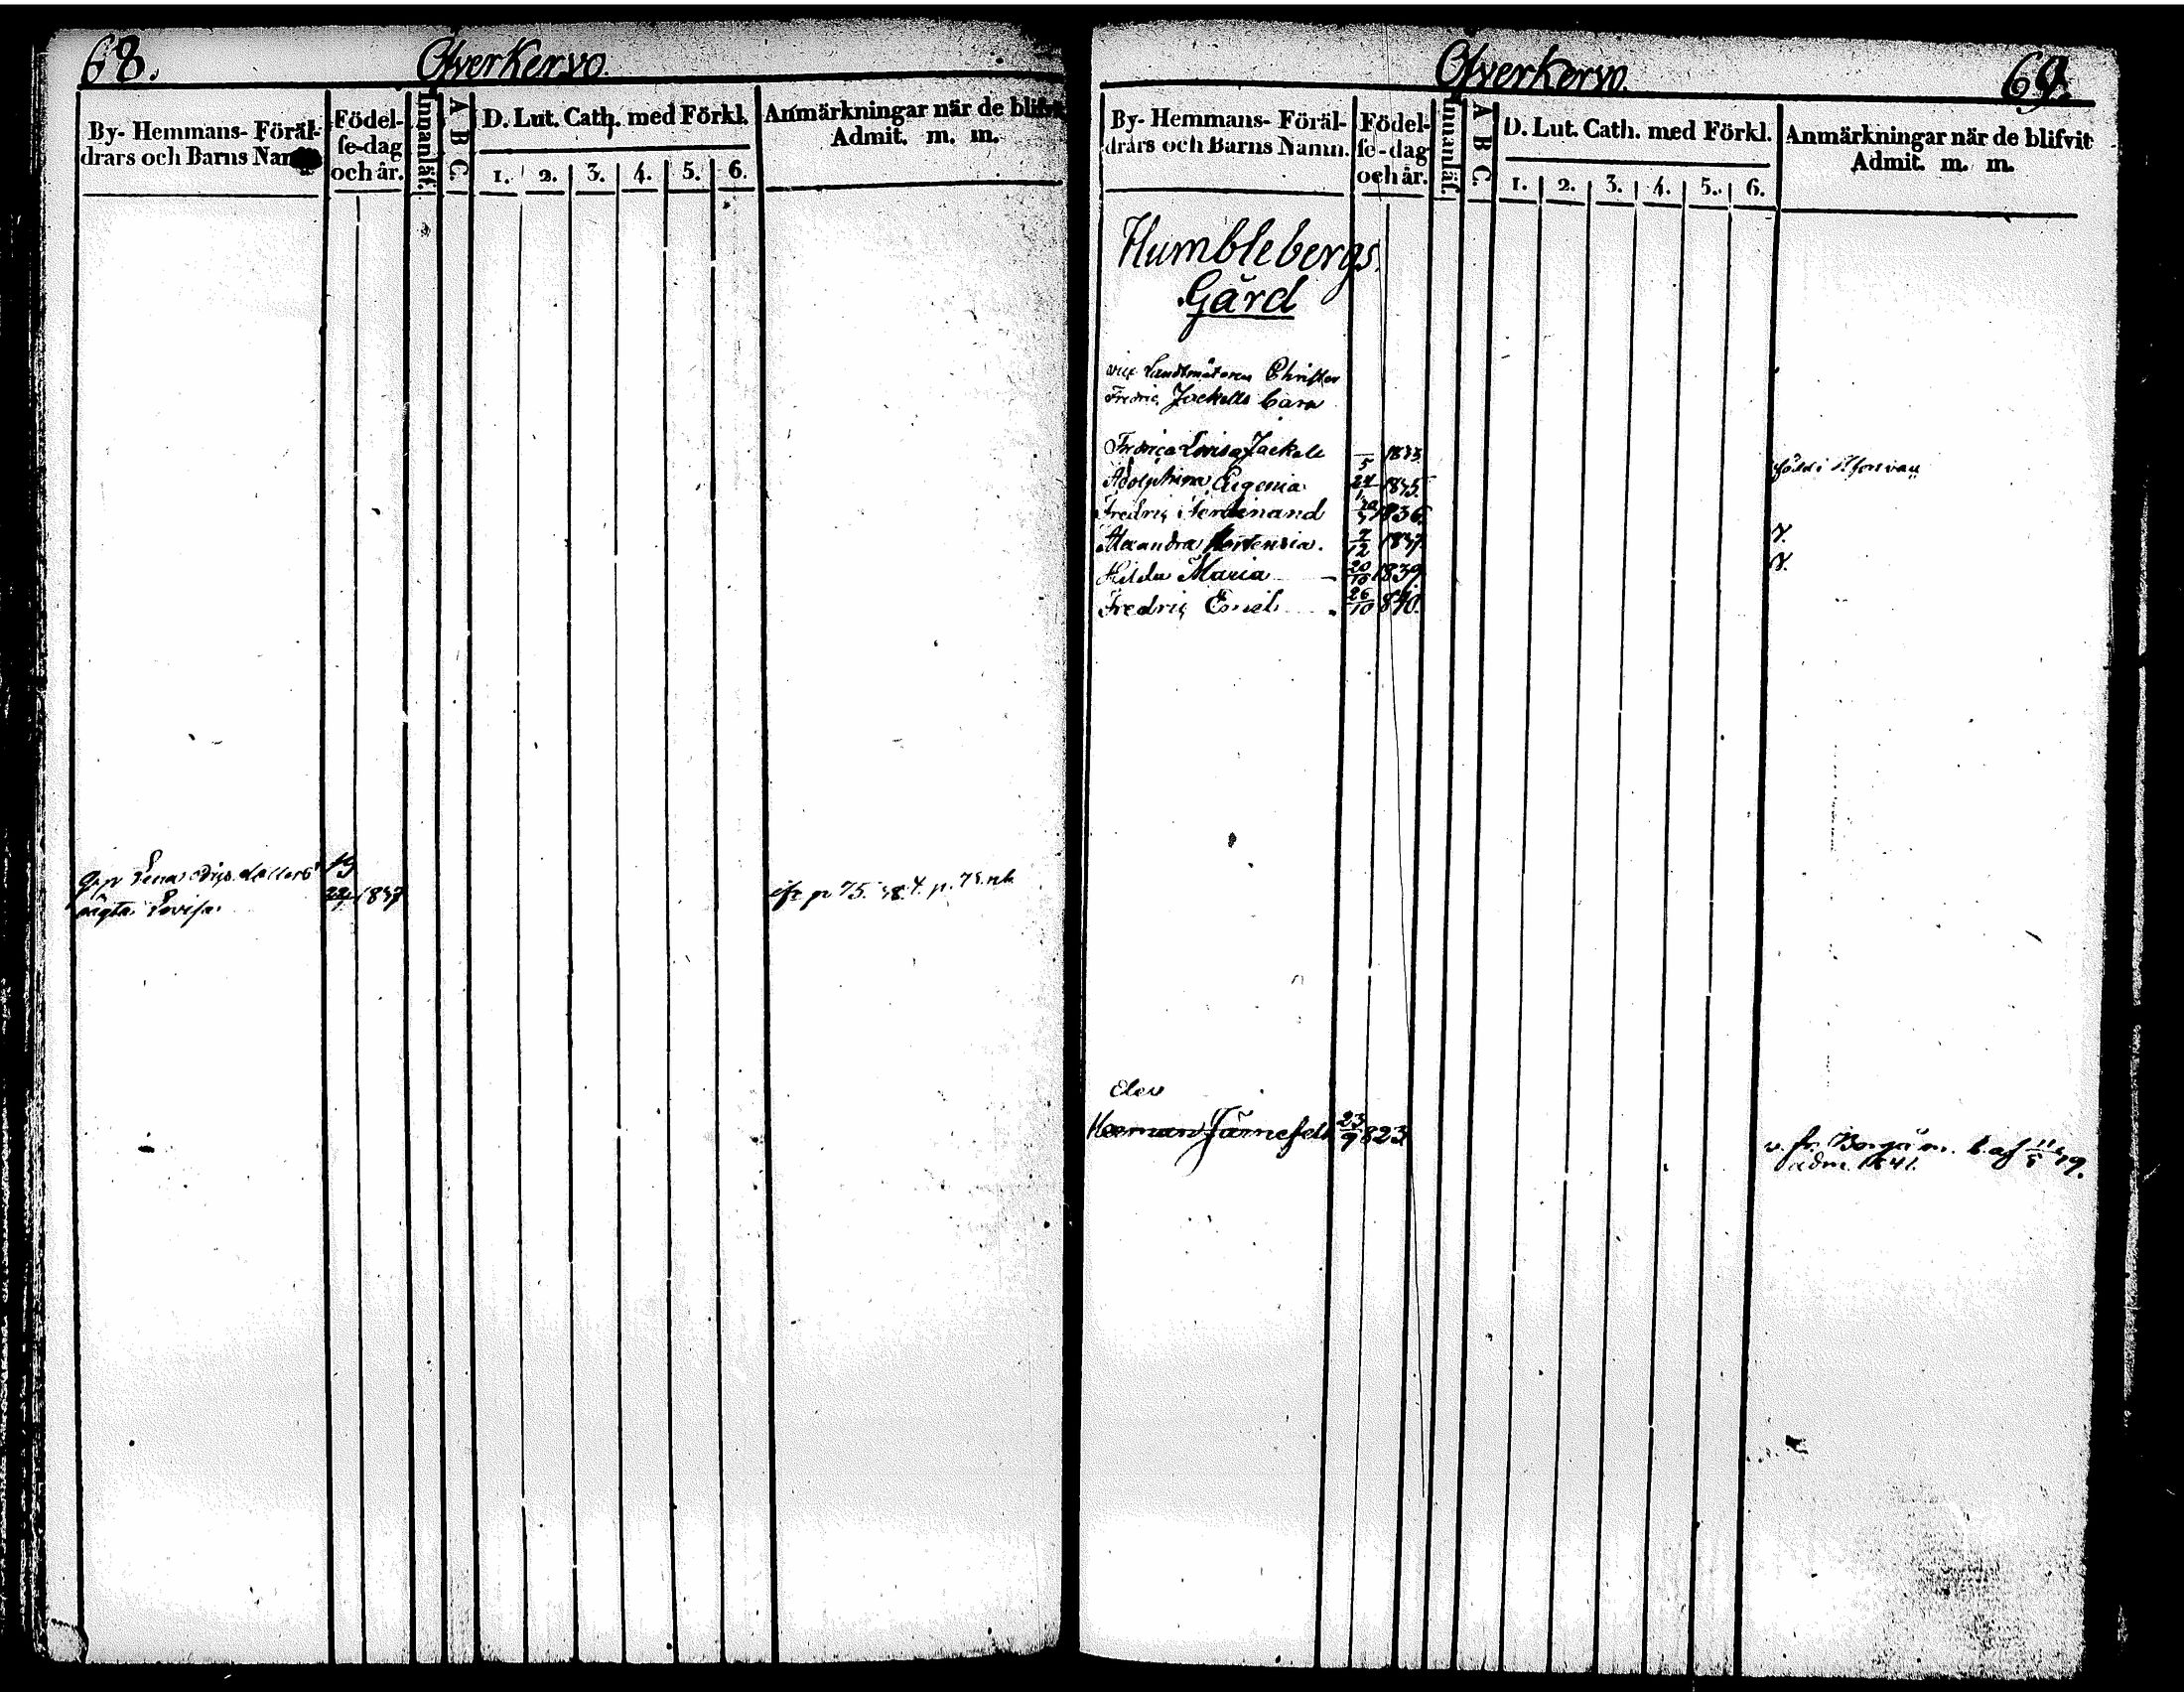 68.
Ofverkervo.
By- Hemmans- Föräl-
drars och Barns Namn
Födel-
se-dag
och år.
Innanläs.
A B C.
D. Lut. Cath. med Förkl.
1. 2. 3. 4. 5. 6.
Anmärkningar när de blifvit
Admit. m. m.
Lena
19
Lovisa
1837
p. 75.
Ofverkervo.
69.
By- Hemmans- Föräl-
drars och Barns Namn.
Födel-
se-dag
och år.
Innanläs.
A B C.
D. Lut. Cath. med Förkl.
1. 2. 3. 4. 5. 6.
Anmärkningar när de blifvit
Admit. m. m.
Humblebergs
Gård
vice Landtmätaren Christer
Fredric Jackells barn
Fredrica Lovisa Jackell 5 1833.
Adolphina Eugenia 1835
Fredric Ferdinand 1836.
Alexandra Hortensia. 7/12 1837.
Hilda Maria 20/10 1839.
Fredric Emil 26/10 840.
Elev
Herman Järnefelt 23/9 823
fr. Borgå
adm. 1841.